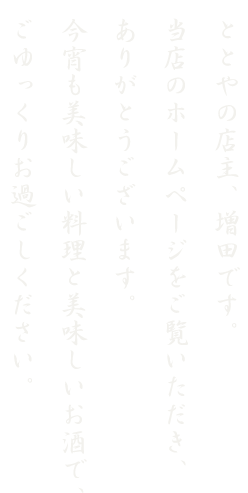 ととやの店主、増田です。
当店のホームページをご覧いただき、
ありがとうございます。
今宵も美味しい料理と美味しいお酒で、
ごゆっくりお過ごしください。